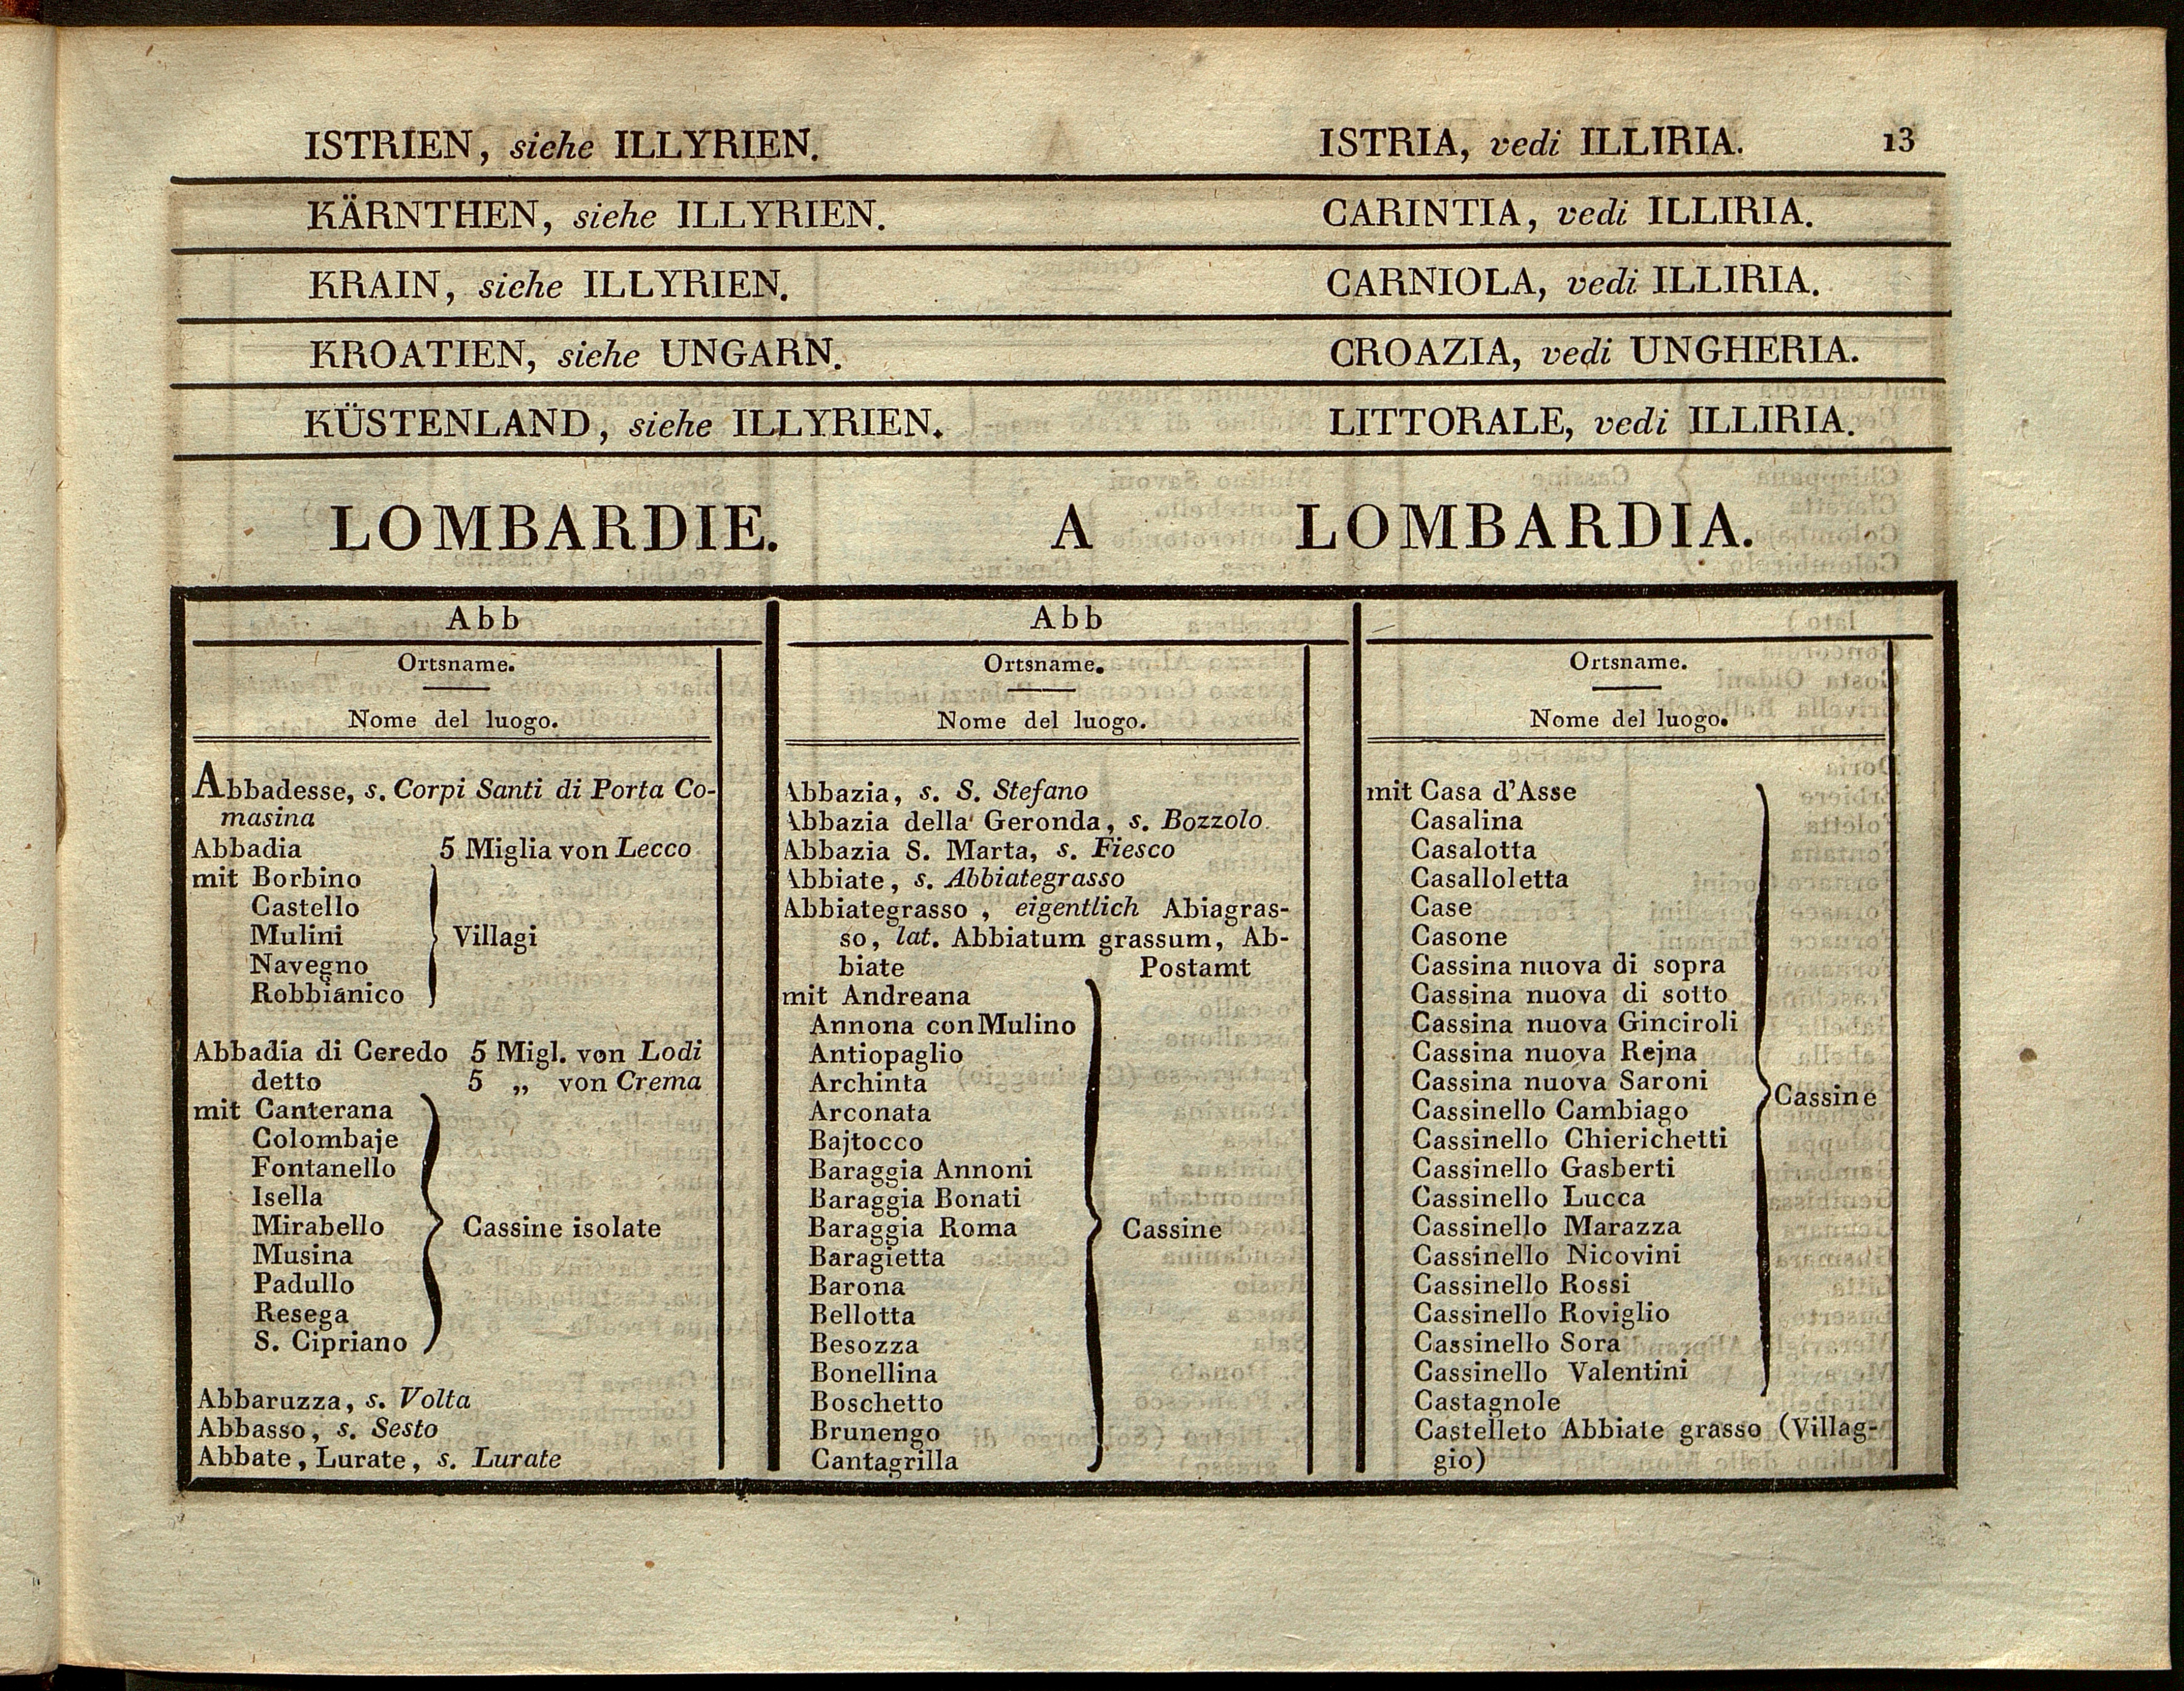 ISTRIEN, siehe ILLYRIEN. ISTRIA, vedi ILLIRIA. 13
KÄRNTHEN, siehe ILLYRIEN. CARINTIA, vedi ILLIRIA.
KRAIN, siehe ILLYRIEN. CARNIOLA, vedi ILLIRIA.
KROATIEN, siehe UNGARN. CROAZIA, vedi UNGHERIA.
KÜSTENLAND, siehe ILLYRIEN. LITTORALE, vedi ILLIRIA.
LOMBARDIE. A LOMBARDIA.
Abb
Ortsname.
Nome del luogo.
Abbadesse, s. Corpi Santi di Porta Co-
masina
Abbadia 5 Miglia von Lecco
mit Borbino
Castello
Mulini Villagi
Navegno
Robbianico
Abbadia di Ceredo 5 Migl. von Lodi
detto 5 „ von Crema
mit Canterana
Colombaje
Fontanello
Isella
Mirabello Cassine isolate
Musina
Padullo
Resega
S. Cipriano
Abbaruzza, s. Volta
Abbasso, s. Sesto
Abbate, Lurate, s. Lurate
Abb
Ortsname.
Nome del luogo.
Abbazia, s. S. Stefano
Abbazia della Geronda, s. Bozzolo.
Abbazia S. Marta, s. Fiesco
Abbiate, s. Abbiategrasso
Abbiategrasso, eigentlich Abiagras-
so, lat. Abbiatum grassum, Ab-
biate Postamt
mit Andreana
Annona con Mulino
Antiopaglio
Archinta
Arconata
Bajtocco
Baraggia Annoni
Baraggia Bonati
Baraggia Roma Cassine
Baragietta
Barona
Bellotta
Besozza
Bonellina
Boschetto
Brunengo
Cantagrilla
Ortsname.
Nome del luogo.
mit Casa d'Asse
Casalina
Casalotta
Casalloletta
Case
Casone
Cassina nuova di sopra
Cassina nuova di sotto
Cassina nuova Ginciroli
Cassina nuova Rejna
Cassina nuova Saroni
Cassinello Cambiago Cassine
Cassinello Chierichetti
Cassinello Gasberti
Cassinello Lucca
Cassinello Marazza
Cassinello Nicovini
Cassinello Rossi
Cassinello Roviglio
Cassinello Sora
Cassinello Valentini
Castagnole
Castelleto Abbiate grasso (Villag-
gio)